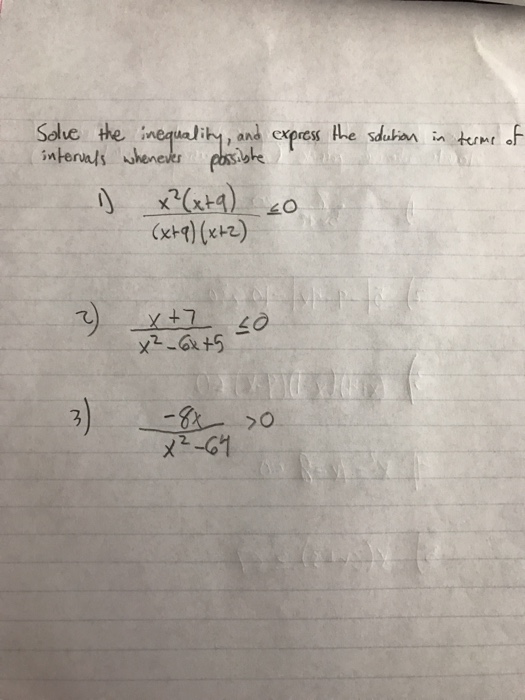 Solve the inequality, and express the solution in terms of
intervals whenever possible
1) x²(x+9) / (x+9)(x+2) ≤0
2) x+7 / x²-6x+5 ≤0
3) -8x / x²-64 >0